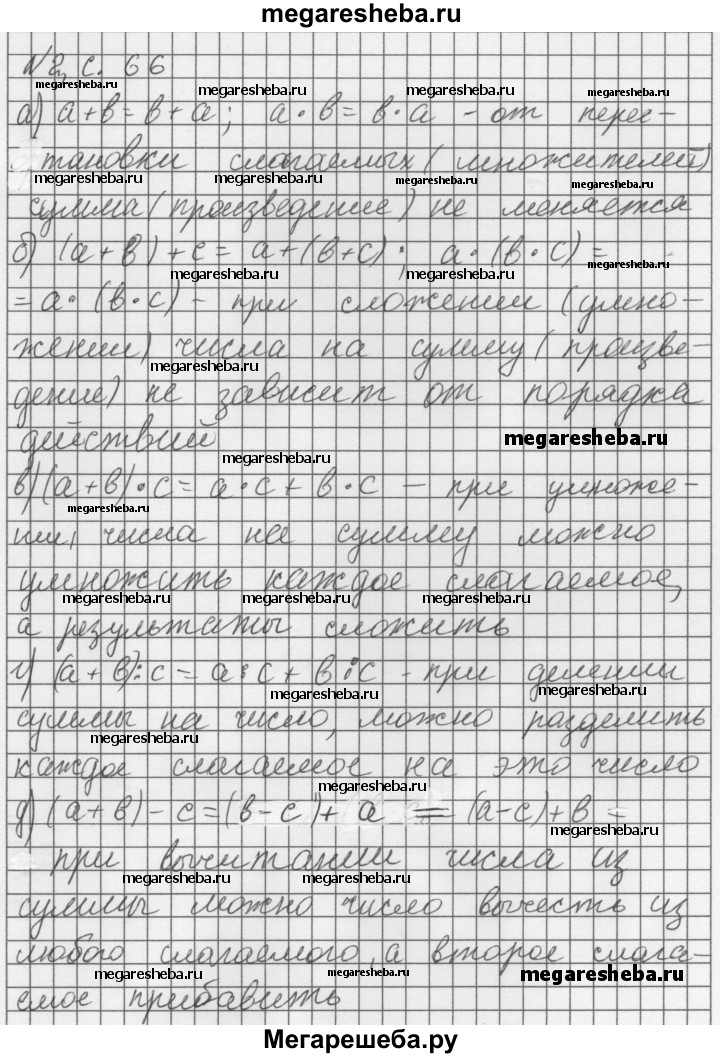 megaresheba.ru
N 2, с. 66
megaresheba.ru megaresheba.ru megaresheba.ru
а) а+в=в+а; а·в=в·а - от перес-
тановки слагаемых (множителей)
megaresheba.ru megaresheba.ru megaresheba.ru megaresheba.ru
сумма (произведение) не меняется
б) (а+в)+с=а+(в+с); а·(в·с)=
megaresheba.ru megaresheba.ru
=а·(в·с) - при сложении (умно-
жении) числа на сумму (произве-
megaresheba.ru megaresheba.ru
дение) не зависит от порядка
действий
megaresheba.ru
megaresheba.ru
в) (а+в)·с=а·с+в·с - при умноже-
megaresheba.ru
нии, числа на сумму можно
умножить каждое слагаемое,
megaresheba.ru megaresheba.ru megaresheba.ru
а результаты сложить
г) (а+в):с=а:с+в:с - при делении
megaresheba.ru megaresheba.ru
суммы на число, можно разделить
megaresheba.ru
каждое слагаемое на это число
megaresheba.ru
д) (а+в)-с=(в-с)+а=(а-с)+в -
megaresheba.ru
при вычитании числа из
megaresheba.ru megaresheba.ru
суммы можно число вычесть из
любого слагаемого, а второе слага-
megaresheba.ru megaresheba.ru megaresheba.ru
емое прибавить
Мегарешеба.ру